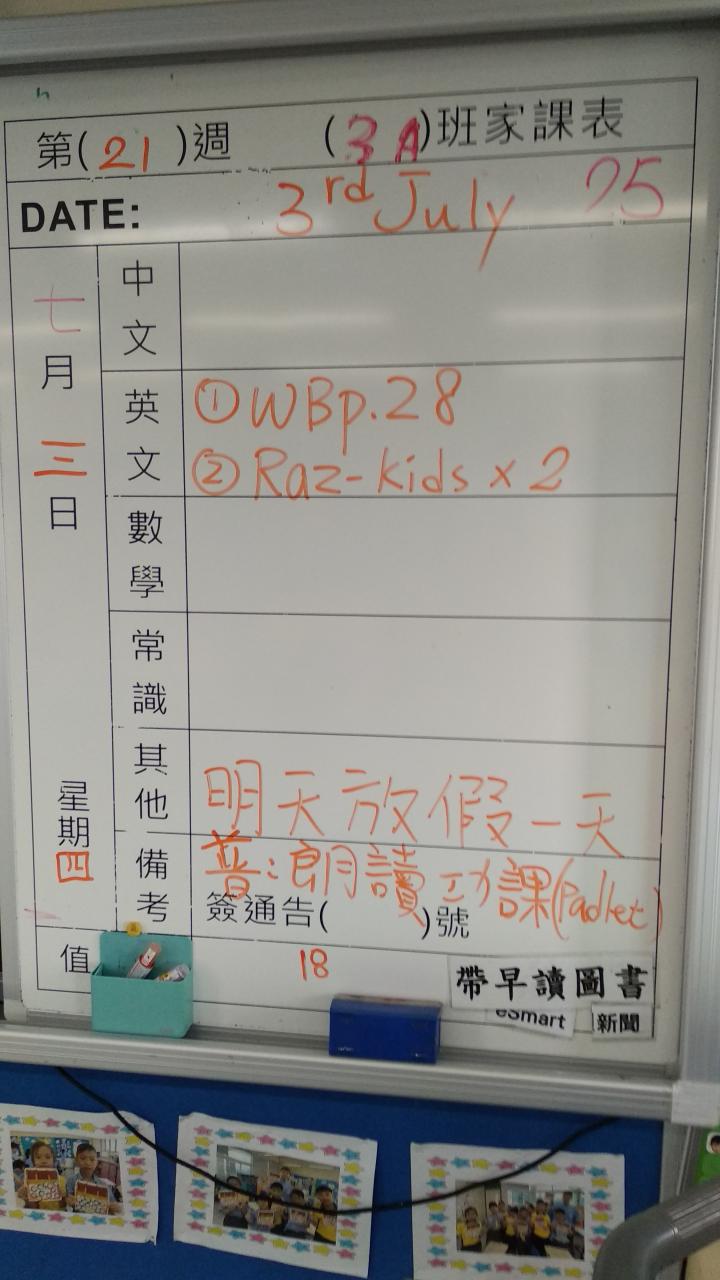 第(21)週 (3A)班家課表
DATE: 3rd July 25
七月三日
星期四
中文
英文 ①WBp.28
②Raz-kids x 2
數學
常識
其他 明天放假一天
備考 普:朗讀功課(Padlet)
簽通告( )號
值 18
帶早讀圖書
eSmart 新聞